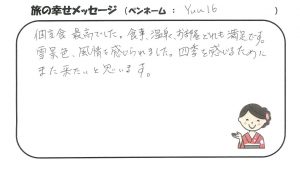 旅の幸せメッセージ（ペンネーム：Yuu16）
最高でした。食事、温泉、お部屋どれも満足です。
雪景色、風情を感じられました。四季を感じるために
また来たいと思います。